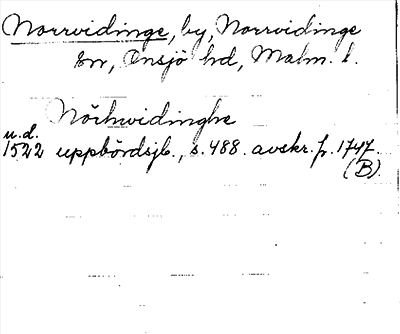 Norrvidinge, by, Norrvidinge
sn, Onsjö hd, Malm. l.
Nörhwidinghe
u.d.
1522 uppbördsjb., s. 488. avskr. fr. 1747.
(B).